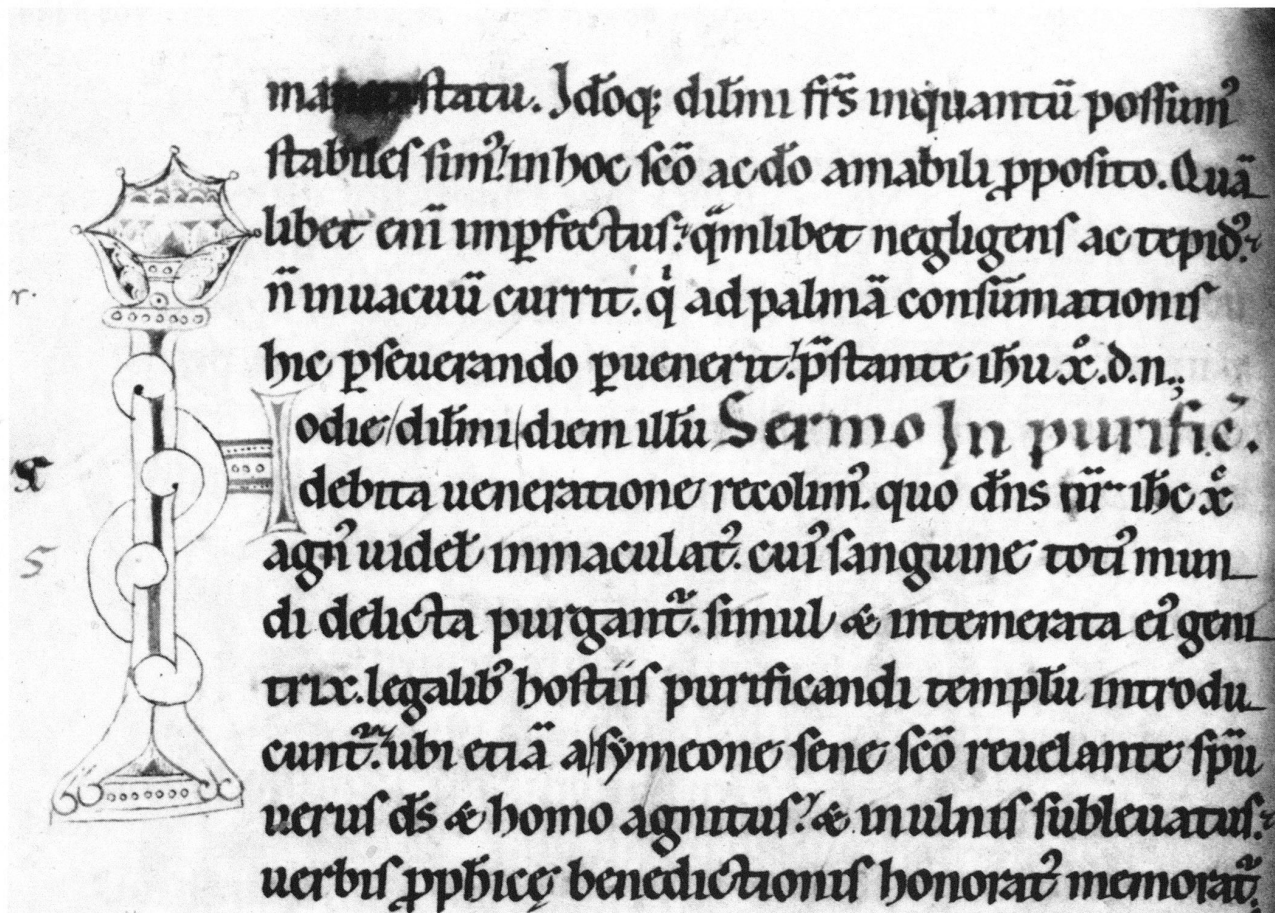 statu. Jdõq; dil̄mi fr̄s inquantũ possumꝰ
stabiles simꝰ inhoc sc̄o ac dõ amabili ꝓposito. Quã
libet eni̅ imꝑfectus: q̄mlibet negligens ac tepidꝰ:
n̄ inuacuũ currit. qͥ ad palmã consũmationis
hic ꝑseuerando ꝑuenerit: p̄stante ih̅u xº. d. n.,
Hodie dil̄mi diem illũ Sermo Jn purific̄.
debita ueneratione recolimꝰ. quo dn̄s nr̄ ih̅c xº
agnꝰ uidel̄ inmaculatꝰ. cuiꝰ sanguine totiꝰ mun
di delicta purgant᷑. simul & intemerata eiꝰ geni
trix. legalibꝰ hostiis purificandi templũ introdu
cunt᷑: ubi etiã a symeone sene sc̄o reuelante sp̄u
uerus ds̄ & homo agnitus: & inulnis subleuatus:
uerbis ꝓph̄icę benedictionis honoratꝰ memorat᷑.
r.
5